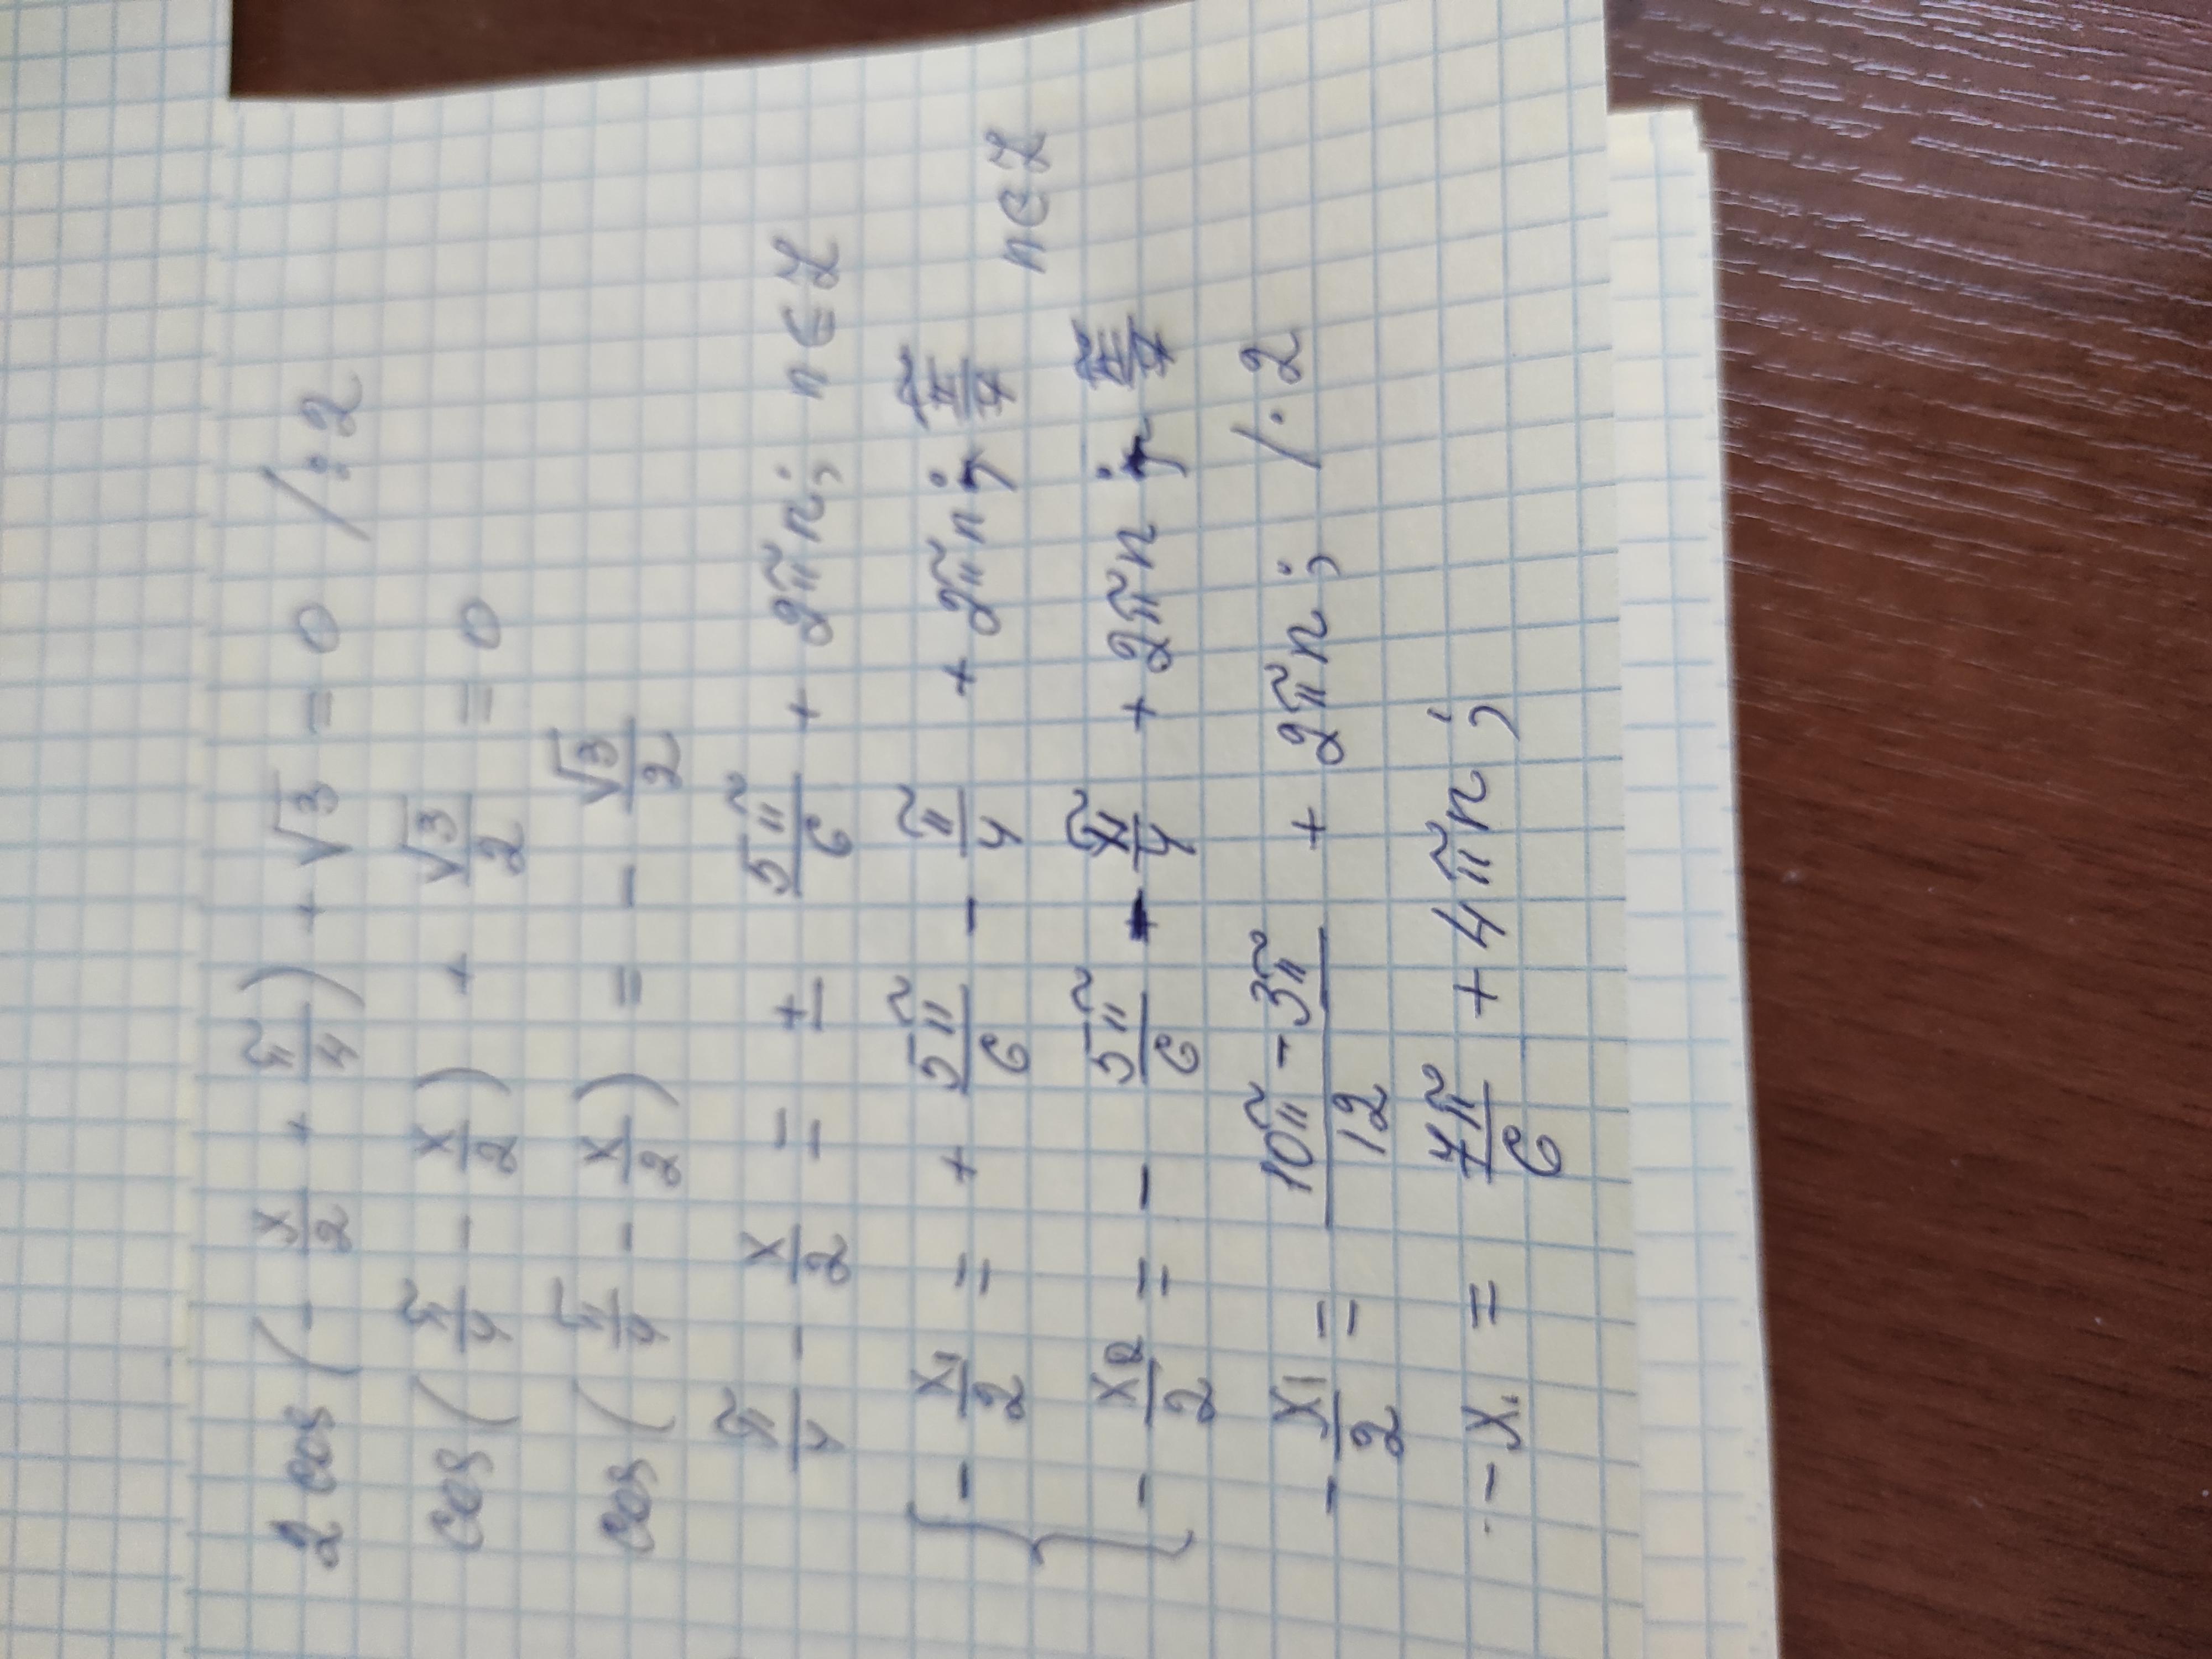 2 cos (- x/2 + π/4) + √3 = 0 /:2
cos (π/4 - x/2) + √3/2 = 0
cos (π/4 - x/2) = - √3/2
π/4 - x/2 = ± 5π/6 + 2πn; n∈Z
{ - x₁/2 = + 5π/6 - π/4 + 2πn;
n∈Z
- x₂/2 = - 5π/6 - π/4 + 2πn;
- x₁/2 = (10π - 3π)/12 + 2πn; /·2
- x₁ = 7π/6 + 4πn;